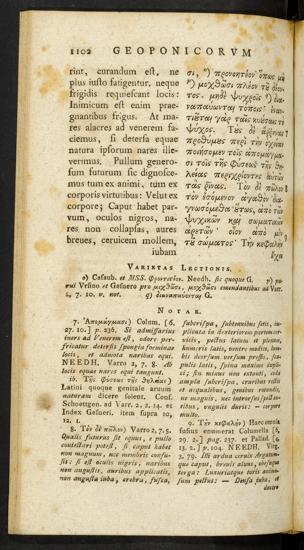 1102 GEOPONICORVM
rint, curandum est, ne
plus iusto fatigentur, neque
frigidis requiescant locis:
Inimicum est enim prae-
gnantibus frigus. At ma-
res alacres ad venerem fa-
ciemus, si detersa equae
natura ipsorum nares ille-
verimus. Pullum genero-
sum futurum sic dignosce-
mus tum ex animi, tum ex
corporis virtutibus: Velut ex
corpore; Caput habet par-
vum, oculos nigros, na-
res non collapsas, aures
breues, ceruicem mollem,
iubam
σι, ο) προνοητέον ὅπως μὴ
p) μοχθῶσι πλέον τοῦ δέον-
τος. μηδὲ ψυχροῖς q) ἐνα-
ναπαύωνται τόποις· ἐναν-
τιῦται γὰρ ταῖς κυούσαις τὸ
ψύχος. Τοὺς δὲ ἄῤῥενας
προθύμους περὶ τὴν ὀχείαν
ποιήσομεν τοῖς ἀπομάγμα-
σι τοῖς τῆς φύσεως τῆς θη-
λείας περιχρίοντες αὐτῶν
τὰς ῥῖνας. Τὸν δὲ πῶλον
τὸν ἐσόμενον ἀγαθὸν δια-
γνωσόμεθα οὕτως, ἀπὸ τῶν
ψυχικῶν καὶ σωματικῶν
ἀρετῶν· οἷον ἀπὸ μὲν
τοῦ σώματος· Τὴν κεφαλὴν
ἔχει
VARIETAS LECTIONIS.
o) Casaub. et MSS. Φροντιστέον. Needh. sic quoque G. p)
Vrsino et Gesnero pro μοχθῶσι, emendantibus ad Varr.
2, 7. 10. v. not. q) G.
NOTAE.
7. Ἀπομάγμασι) Colum. [6,
27. 10.] p. 236. Si admissarius
iners ad Venerem est, odore per-
fricatur detersis spongia feminae
locis, et admota naribus equi.
NEEDH. Varro 2, 7. 8. Ab
locis equae nares equi tangunt.
ib. Τῆς Φύσεως τῆς θηλείας)
Latini quoque genitale quum
naturam dicere solent. Conf.
Schoettgen. ad Varr. 2, 2. 14. et
Index Gesneri. item supra 10,
12, 1.
8. Τὸν δὲ πῶλον) Varro 2, 7. 5.
Qualis futurus sit equus, e pullo
coniectari potest, si caput habet
non magnum, nec membris confu-
sis: si est oculis nigris, naribus
non angustis, auribus applicatis,
non angusta iuba, crebra, fusca,
subcrispa, subtenuibus setis, im-
plicata in dexteriorem partem cer-
vicis, pectus latum et plenum,
humeris latis, ventre modico, lum-
bis deorsum versum pressis, sca-
pulis latis, spina maxime dupli-
ci; sin minus non extanti, coda
ampla subcrispa, cruribus rectis
et aequalibus; genibus rotundis,
ne magnis, nec introrsus spectan-
tibus, vngulis duris: — corpore
multo.
9. Τὴν κεφαλὴν) Haec omnia
fusius enumerat Columella [6,
29. 2.] pag. 237. et Pallad. [4.
13. 2.] p. 104. NEEDH. Virg.
3. 79. Illi ardua ceruix Argutum-
que caput, breuis aluus, obesaque
terga: Luxuriatque toris animo-
sum pectus: — Densa iuba, et
dextro